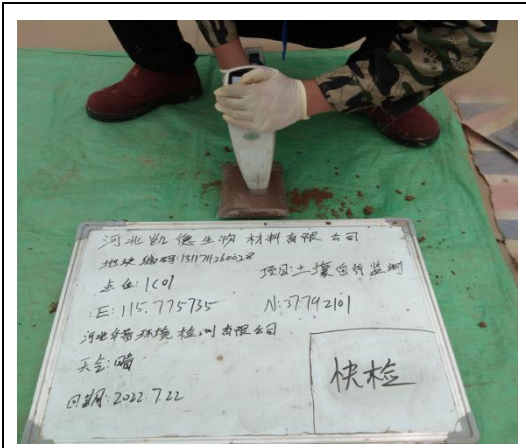 河北凯德生物材料有限公司
地块编码:1311711260028
项目:土壤自行监测
点位:1C01
E:115.775735 N:37.792101
河北华普环境检测有限公司
天气:晴
日期:2022.7.22
快检